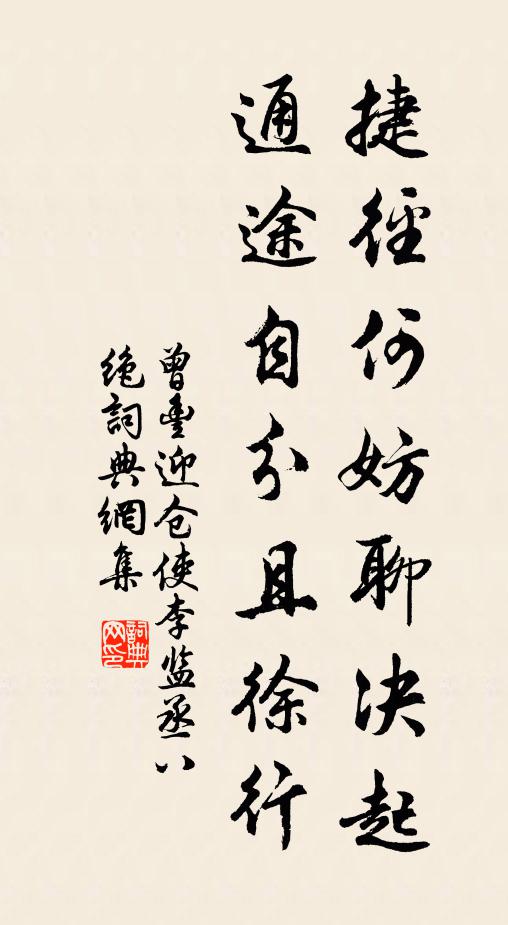 捷徑何妨聊决起
通途自分且徐行
曾豐迎仓使李监丞八
绝詞典網集
詞典网印